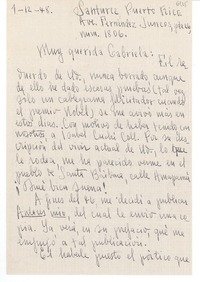 1-12-48. Santurce Puerto Rico
Ave. Fernández Juncos, 
núm. 1806.
Muy querida Gabriela: El re
cuerdo de Ud., nunca borrado aunque
de ello he dado escasas pruebas (tal vez
sólo un cablegrama felicitador cuando
el premio Nobel) se me aviva más en
estos días. Con motivo de haber 
a Isabel Cuchí Coll. Por su des
cripción del vivir actual de Ud., lo que
le rodea, me ha parecido verme en el
pueblo de Santa Bárbara, calle Anapamú
¡Suena bien 
A fines del 46, me decidí a publicar
 mío, del cual le envío una co
pia. Ya verá, en su prefacio, qué me
empujó a tal publicación.
El haberle puesto el pórtico que